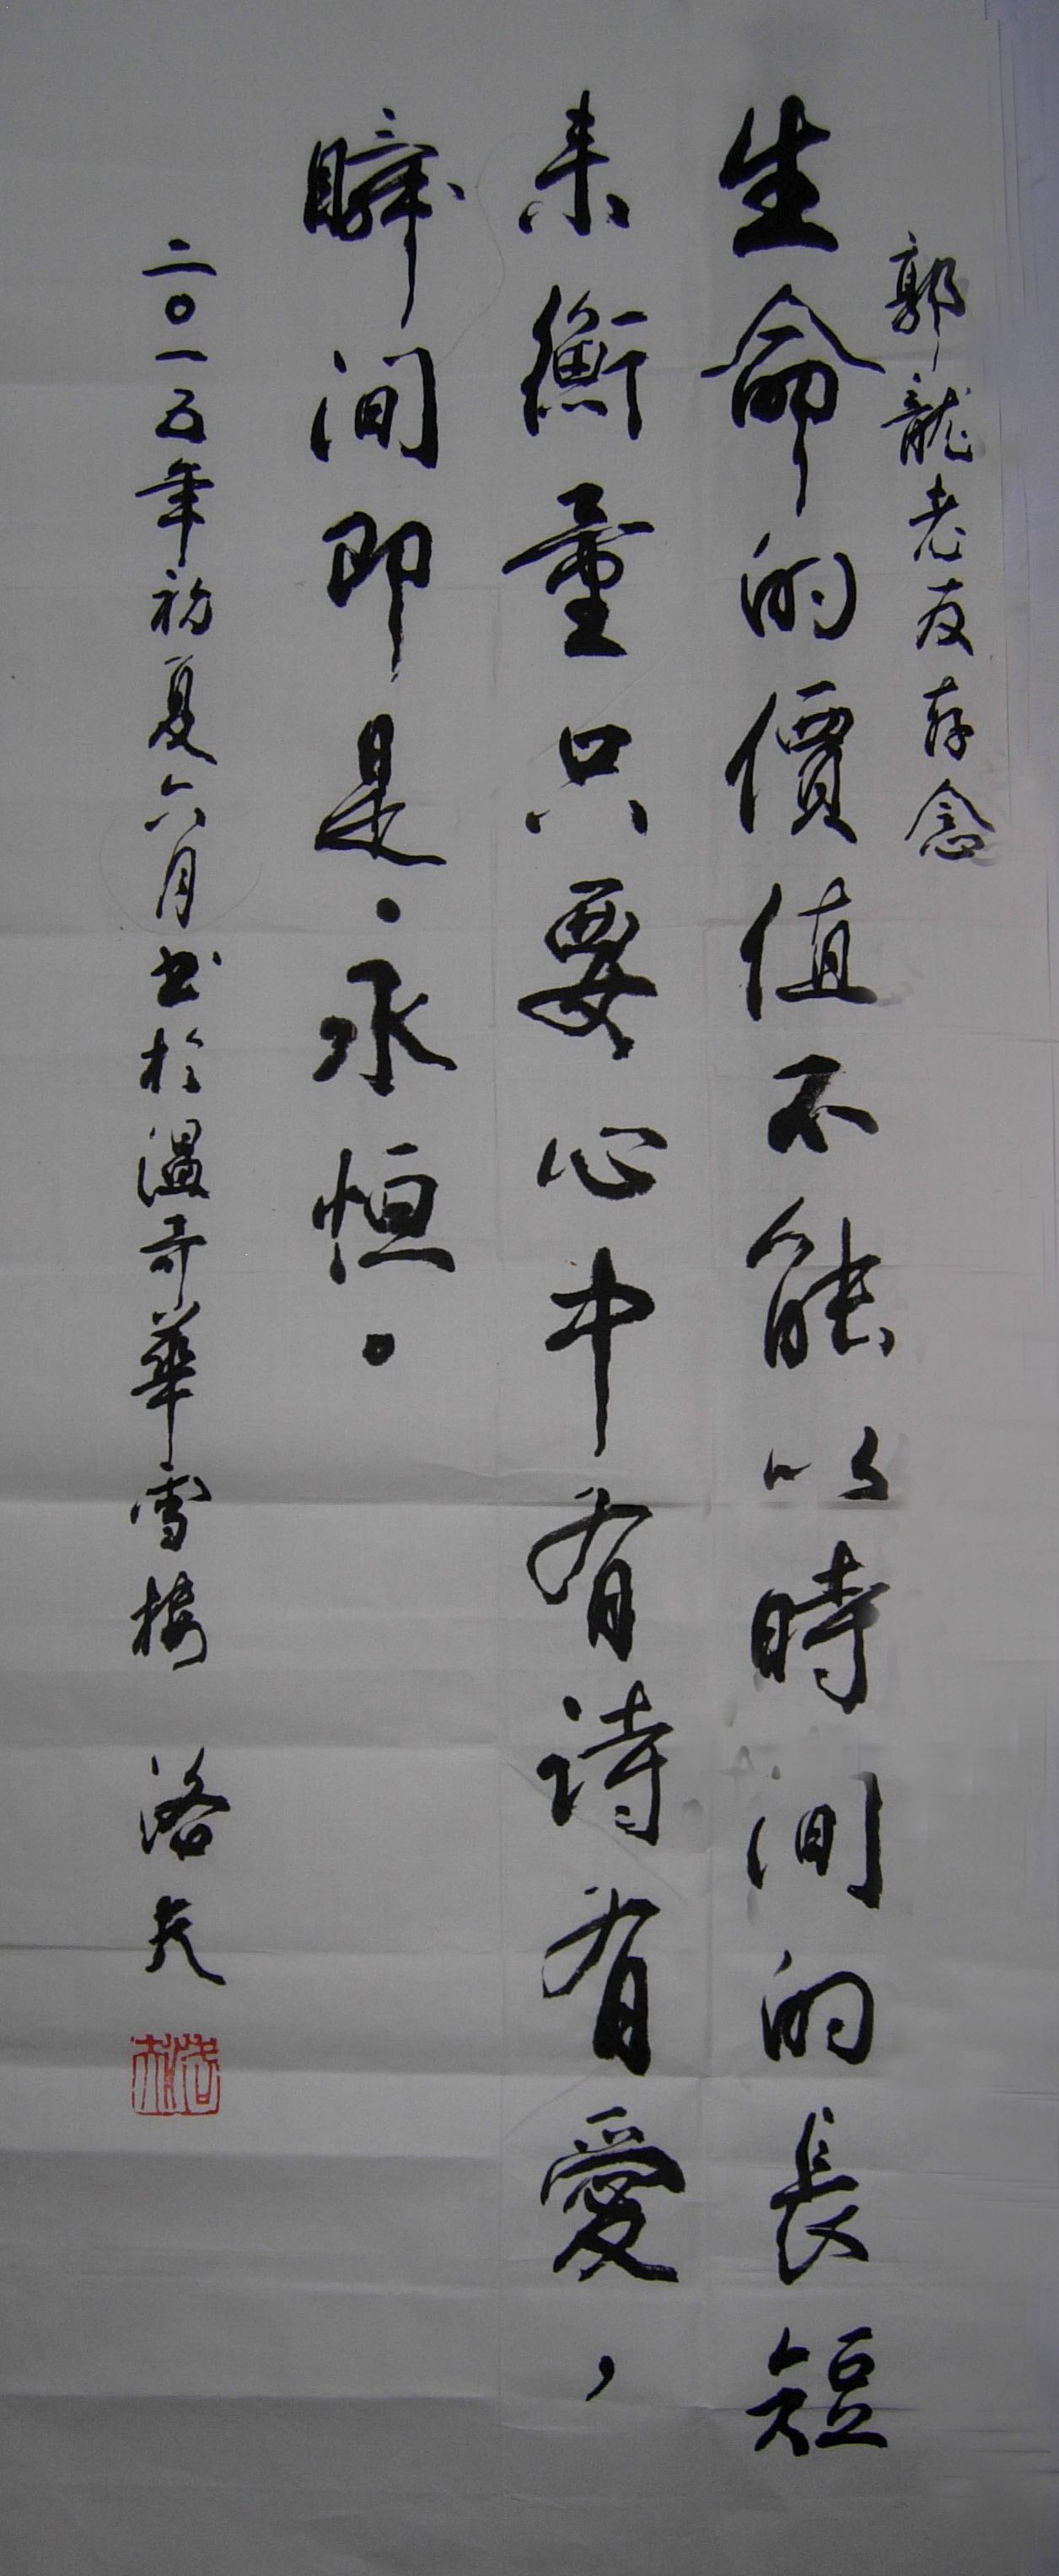 郭龍老友存念
生命的價值不能以時間的長短
来衡量只要心中有诗有愛，
瞬间即是·永恒。
二〇一五年初夏六月书於温哥華雪樓 洛夫
洛夫